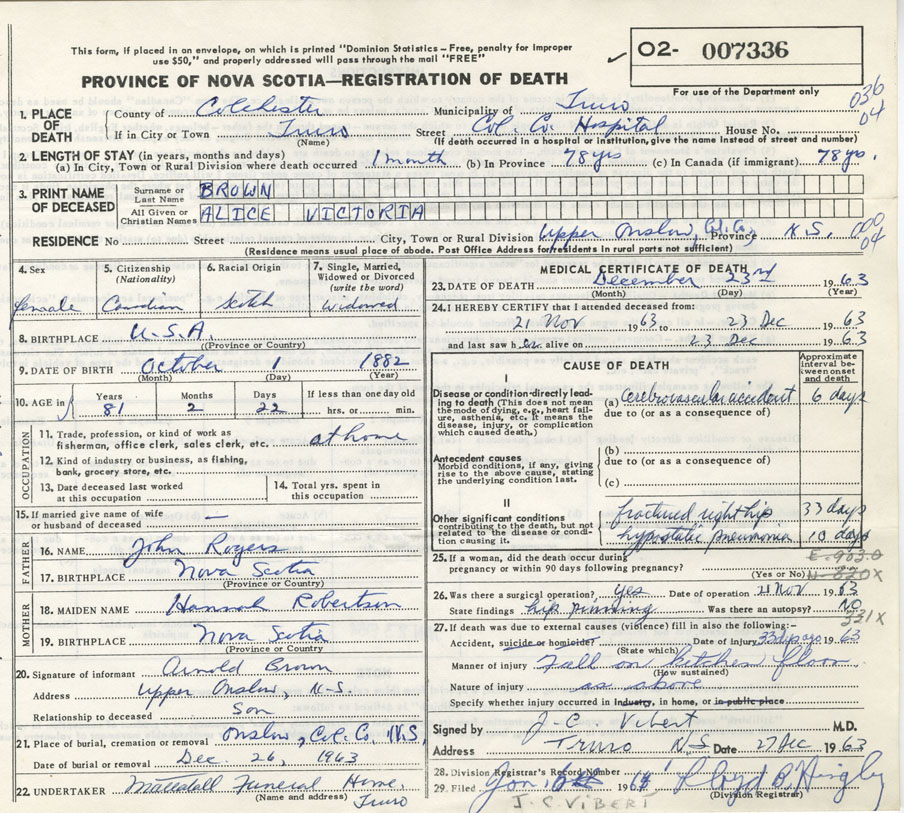 This form, if placed in an envelope, on which is printed "Dominion Statistics – Free, penalty for improper
use $50," and properly addressed will pass through the mail "FREE"
✓ O2- 007336
PROVINCE OF NOVA SCOTIA—REGISTRATION OF DEATH
For use of the Department only
036
04
1. PLACE OF DEATH
County of Colchester Municipality of Truro
If in City or Town Truro Street Col. Co. Hospital House No.
(Name) (If death occurred in a hospital or institution, give the name instead of street and number)
2. LENGTH OF STAY (in years, months and days)
(a) In City, Town or Rural Division where death occurred 1 month (b) In Province 78 yrs (c) In Canada (if immigrant) 78 yo.
3. PRINT NAME OF DECEASED
Surname or Last Name BROWN
All Given or Christian Names ALICE VICTORIA
000
04
RESIDENCE No Street City, Town or Rural Division Upper Onslow, Col. Co. Province N.S.
(Residence means usual place of abode. Post Office Address for residents in rural parts not sufficient)
4. Sex
female
5. Citizenship
(Nationality)
Canadian
6. Racial Origin
Scotch
7. Single, Married,
Widowed or Divorced
(write the word)
Widowed
8. BIRTHPLACE U.S.A.
(Province or Country)
9. DATE OF BIRTH October 1 1882
(Month) (Day) (Year)
10. AGE in
Years Months Days If less than one day old
81 2 22 hrs. or min.
OCCUPATION
11. Trade, profession, or kind of work as
fisherman, office clerk, sales clerk, etc. at home
12. Kind of industry or business, as fishing,
bank, grocery store, etc.
13. Date deceased last worked
at this occupation
14. Total yrs. spent in
this occupation
15. If married give name of wife
or husband of deceased —
FATHER
16. NAME John Rogers
17. BIRTHPLACE Nova Scotia
(Province or Country)
MOTHER
18. MAIDEN NAME Hannah Robertson
19. BIRTHPLACE Nova Scotia
(Province or Country)
20. Signature of informant Arnold Brown
Address Upper Onslow, N.S.
Relationship to deceased Son
21. Place of burial, cremation or removal Onslow, Col. Co. N.S.
Date of burial or removal Dec. 26, 1963
22. UNDERTAKER Mattatall Funeral Home,
(Name and address) Truro
MEDICAL CERTIFICATE OF DEATH
23. DATE OF DEATH December 23rd 1963
(Month) (Day) (Year)
24. I HEREBY CERTIFY that I attended deceased from:
21 Nov 1963 to 23 Dec 1963
and last saw her alive on 23 Dec 1963
CAUSE OF DEATH
Approximate
interval be-
tween onset
and death
I
Disease or condition directly lead-
ing to death (This does not mean
the mode of dying, e.g., heart fail-
ure, asthenia, etc. It means the
disease, injury, or complication
which caused death.)
(a) Cerebrovascular accident 6 days
due to (or as a consequence of)
Antecedent causes
Morbid conditions, if any, giving
rise to the above cause, stating
the underlying condition last.
(b)
due to (or as a consequence of)
(c)
II
Other significant conditions
contributing to the death, but not
related to the disease or condi-
tion causing it.
fractured right hip 33 days
hypostatic pneumonia 10 days
E-903.0
25. If a woman, did the death occur during
pregnancy or within 90 days following pregnancy?
(Yes or No) N-820X
26. Was there a surgical operation? Yes Date of operation 21 Nov 1963
State findings hip pinning Was there an autopsy? NO
331X
27. If death was due to external causes (violence) fill in also the following:–
Accident, suicide or homicide? Date of injury 33 days ago 1963
(State which)
Manner of injury Fall on kitchen floor
(How sustained)
Nature of injury as above
Specify whether injury occurred in Industry, in home, or in public place
Signed by J-C Vibert M.D.
Address Truro N.S Date 27 Dec 1963
28. Division Registrar's Record Number
29. Filed Jan 1964 Lloyd B. Hingley
(Division Registrar)
J. C. VIBERT